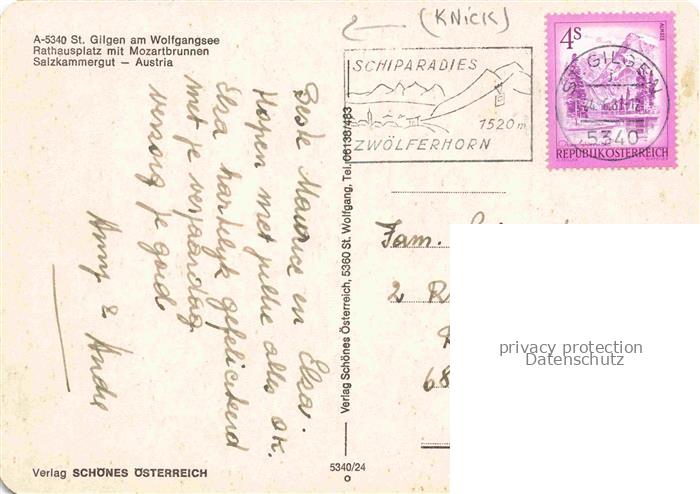 A-5340 St. Gilgen am Wolfgangsee
Rathausplatz mit Mozartbrunnen
Salzkammergut – Austria
(KNICK)
SCHIPARADIES
1520 m
ZWÖLFERHORN
4 S
ALMSEE
REPUBLIK ÖSTERREICH
ST. GILGEN
5340
Beste Maurice en Elza.
Hopen met jullie alles OK.
Elza hartelijk gefeliciteerd
met je verjaardag
verzorg je goed
Anny & Andre
Verlag Schönes Österreich, 5360 St. Wolfgang, Tel. 06138/483
Fam.
2 R
68
privacy protection
Datenschutz
Verlag SCHÖNES ÖSTERREICH
5340/24
o